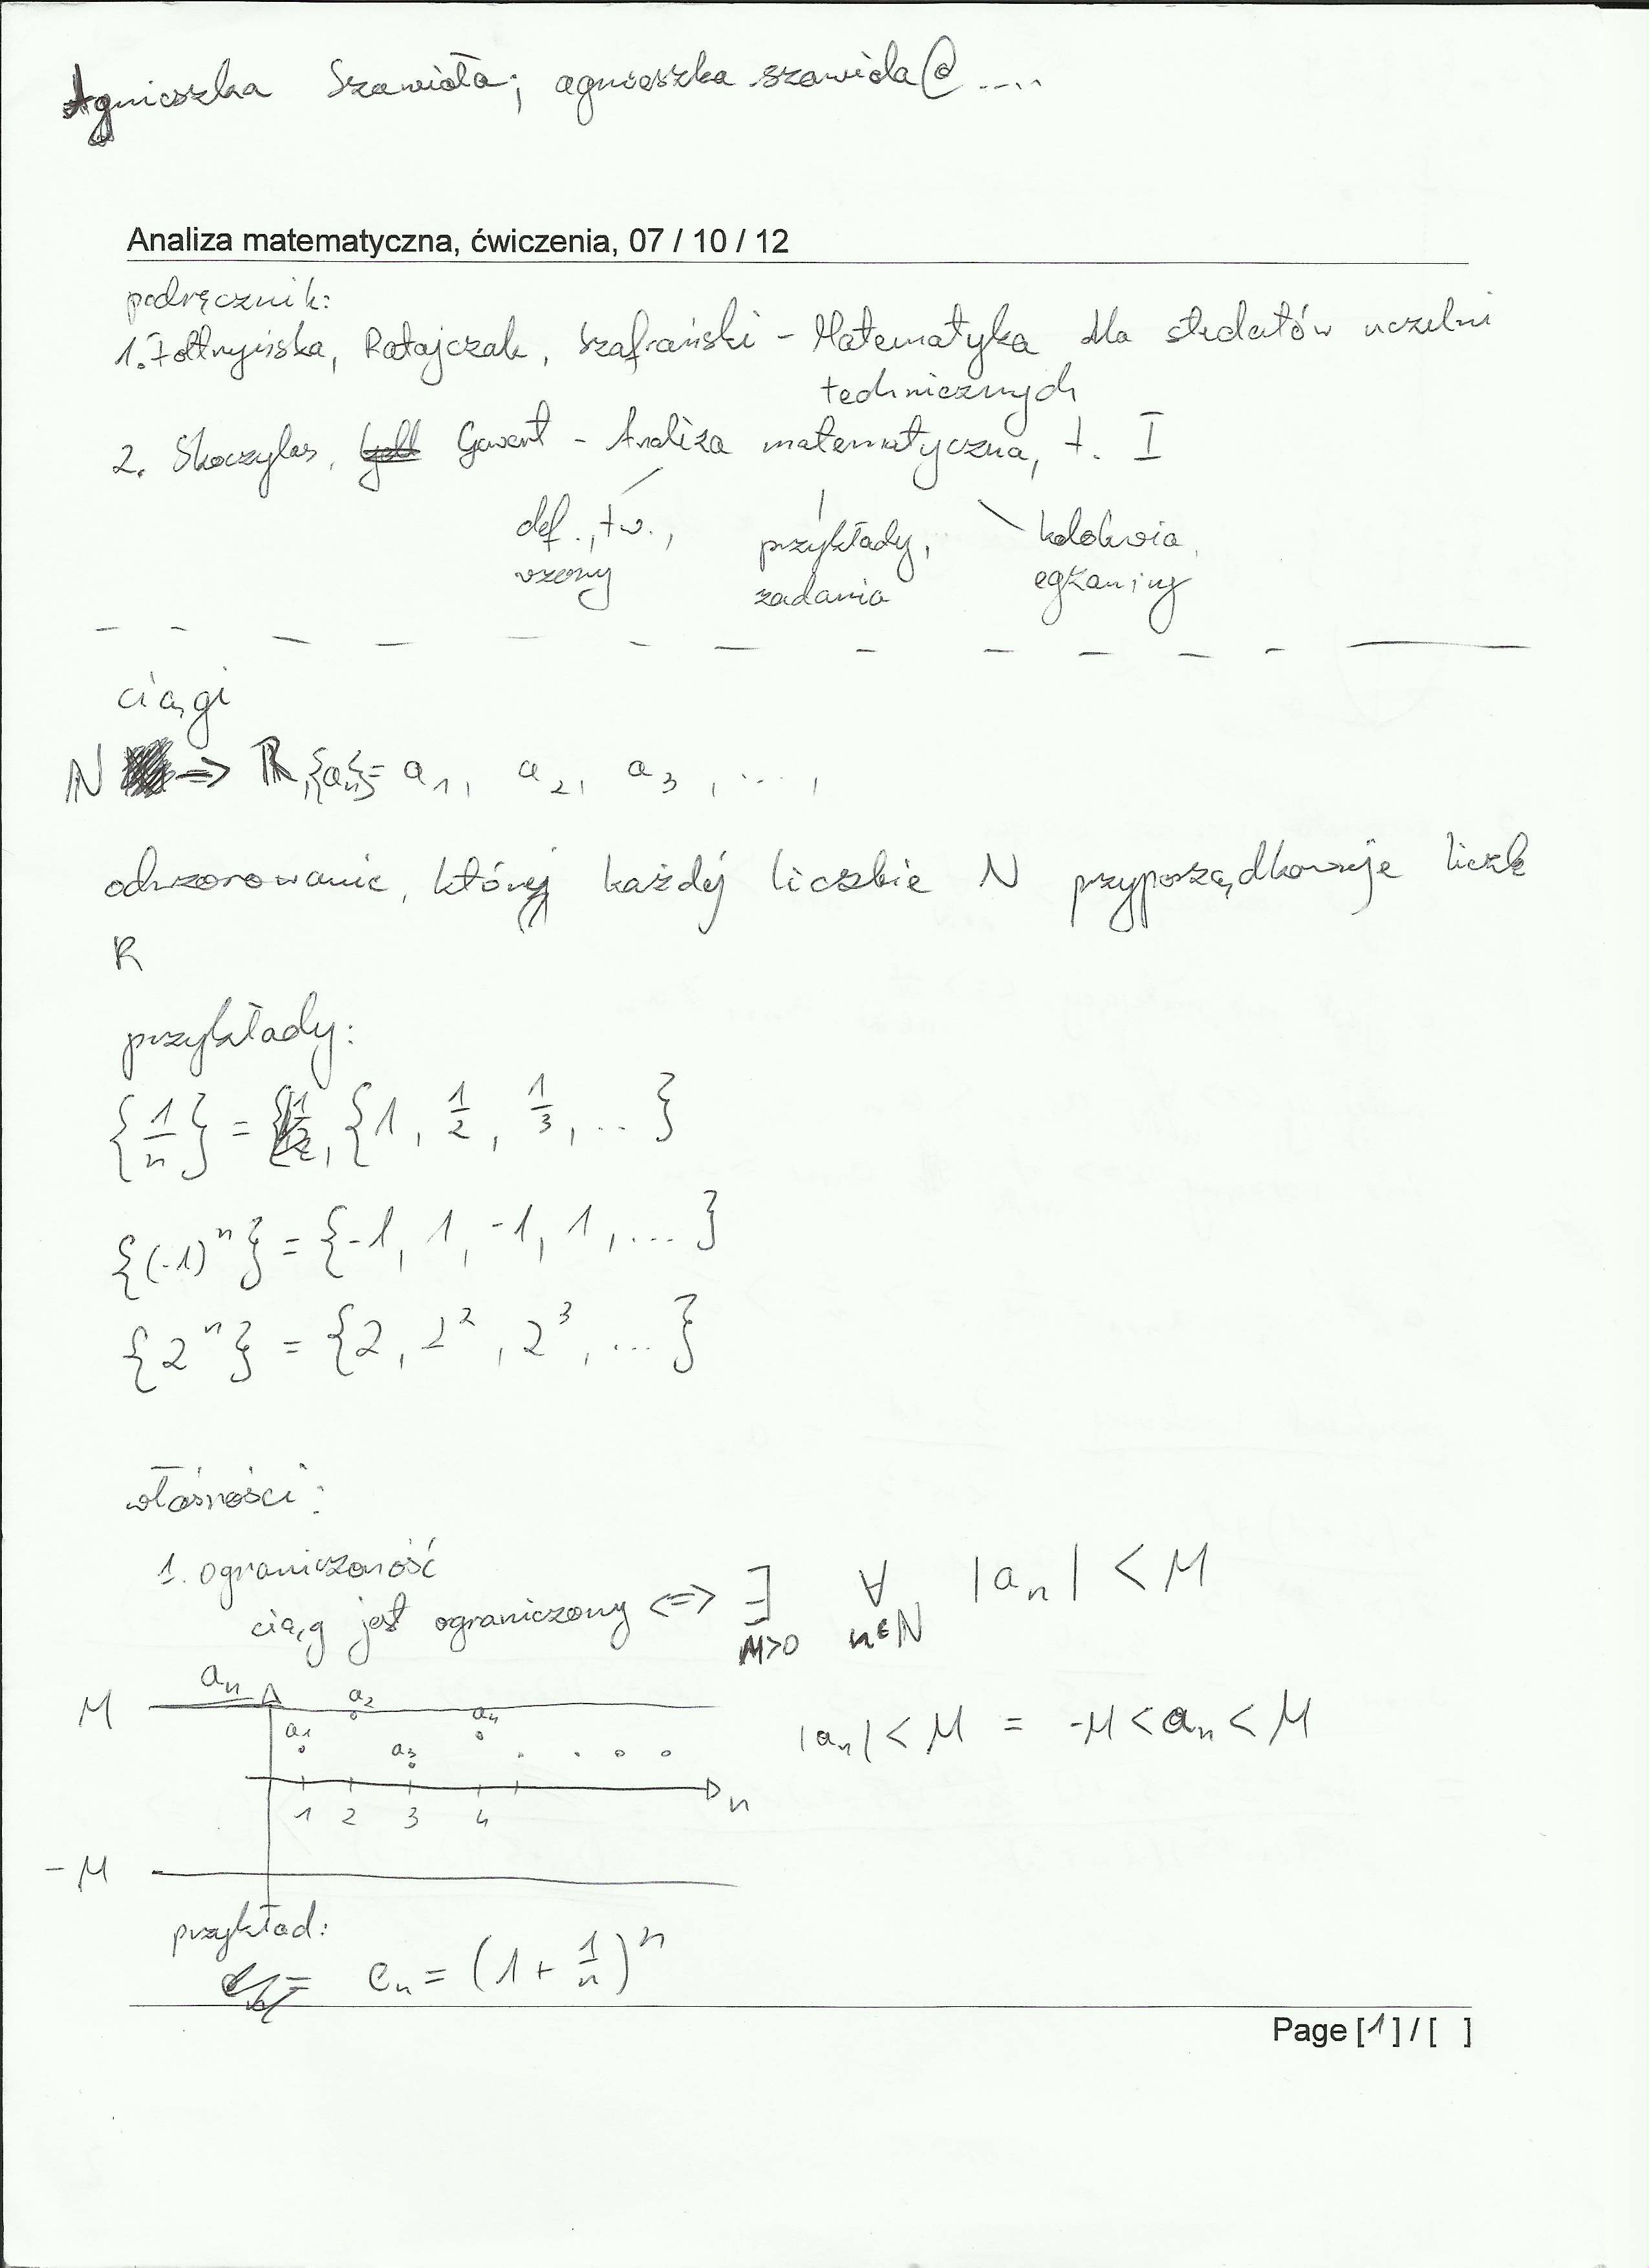 Agnieszka Szawioła; agnieszka.szawiola@....
Analiza matematyczna, ćwiczenia, 07 / 10 / 12
podręcznik:
1. Foltyńska, Ratajczak, Szafrański - Matematyka dla studentów uczelni
technicznych
2. Skoczylas, Gewert - Analiza matematyczna, t. I
def., tw., przykłady, kolokwia,
wzory zadania egzaminy
ciągi
N => R, {an} = a1, a2, a3, ...,
odwzorowanie, której każdej liczbie N przyporządkowuje liczbę
R
przykłady:
{1/n} = {1, 1/2, 1/3, ...}
{(-1)^n} = {-1, 1, -1, 1, ...}
{2^n} = {2, 2^2, 2^3, ...}
własności:
1. ograniczoność
ciąg jest ograniczony <=> ∃ ∀ |an| < M
M>0 n∈N
an
M a1 a2 a3 a4
|an| < M = -M < an < M
1 2 3 4 n
-M
przykład:
en = (1 + 1/n)^n
Page [1] / [ ]